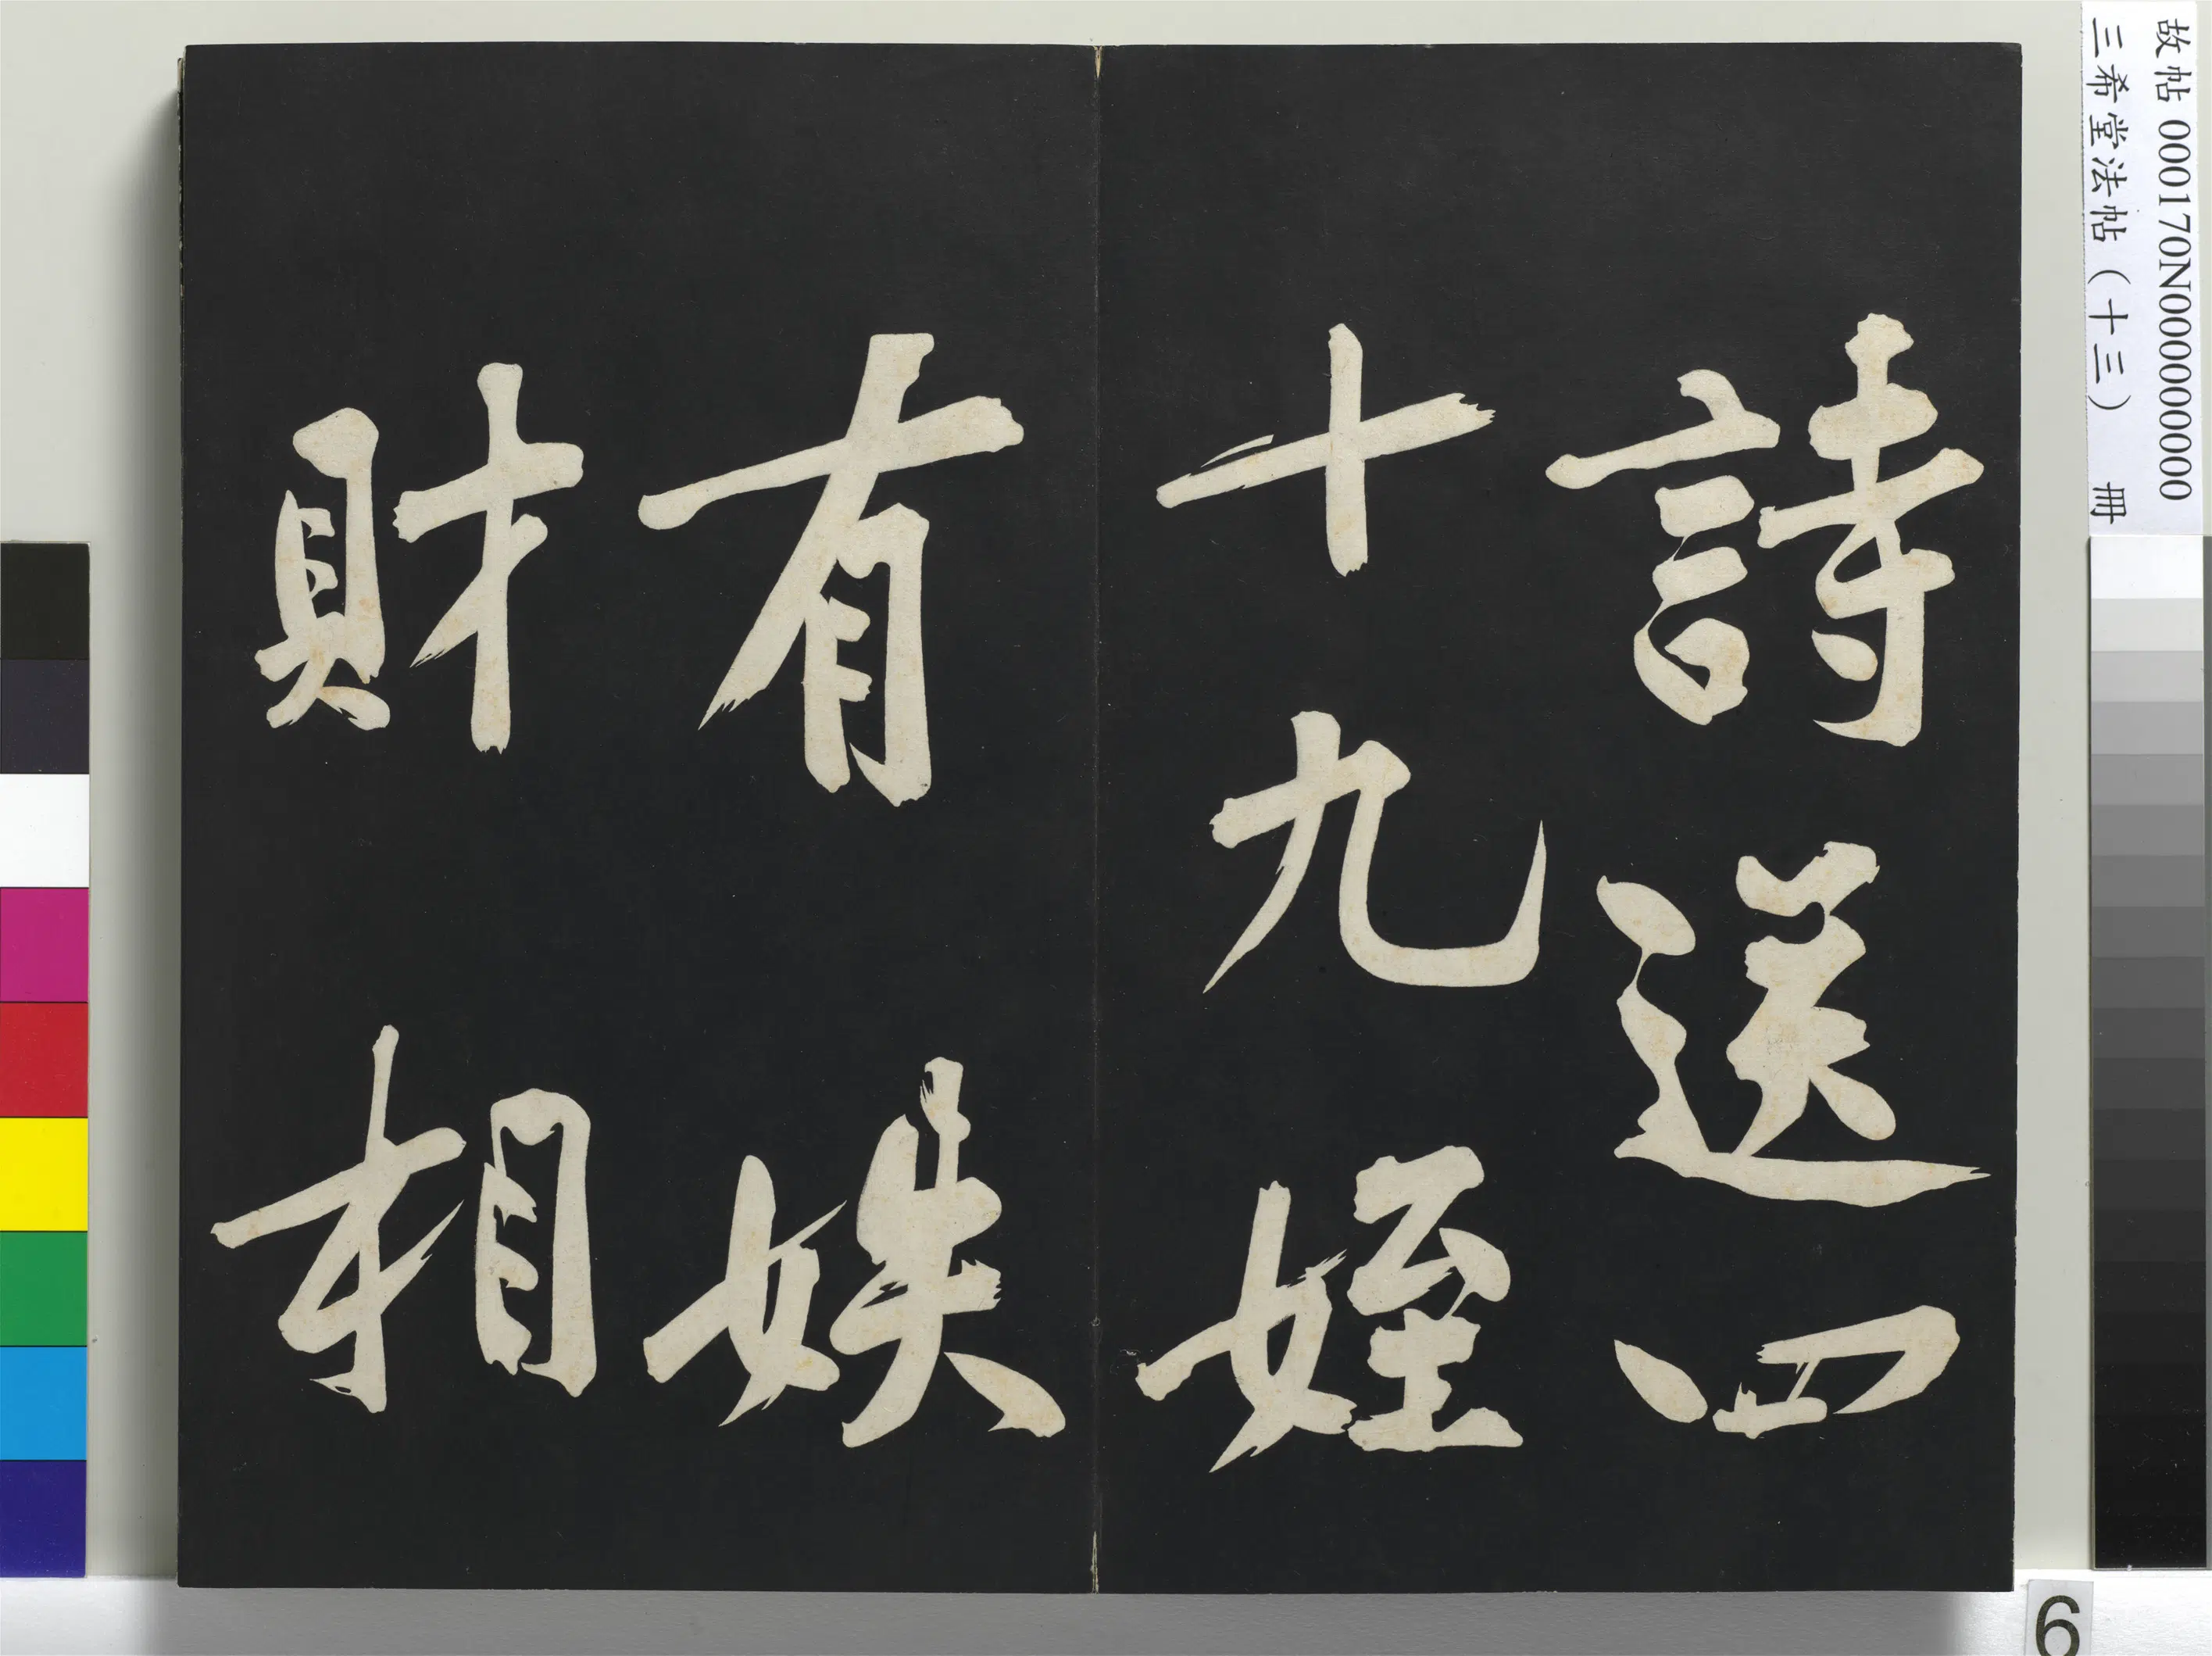 故帖 000170N000000000
三希堂法帖（十三） 冊
詩送四
十九姪
有妷
財相
6